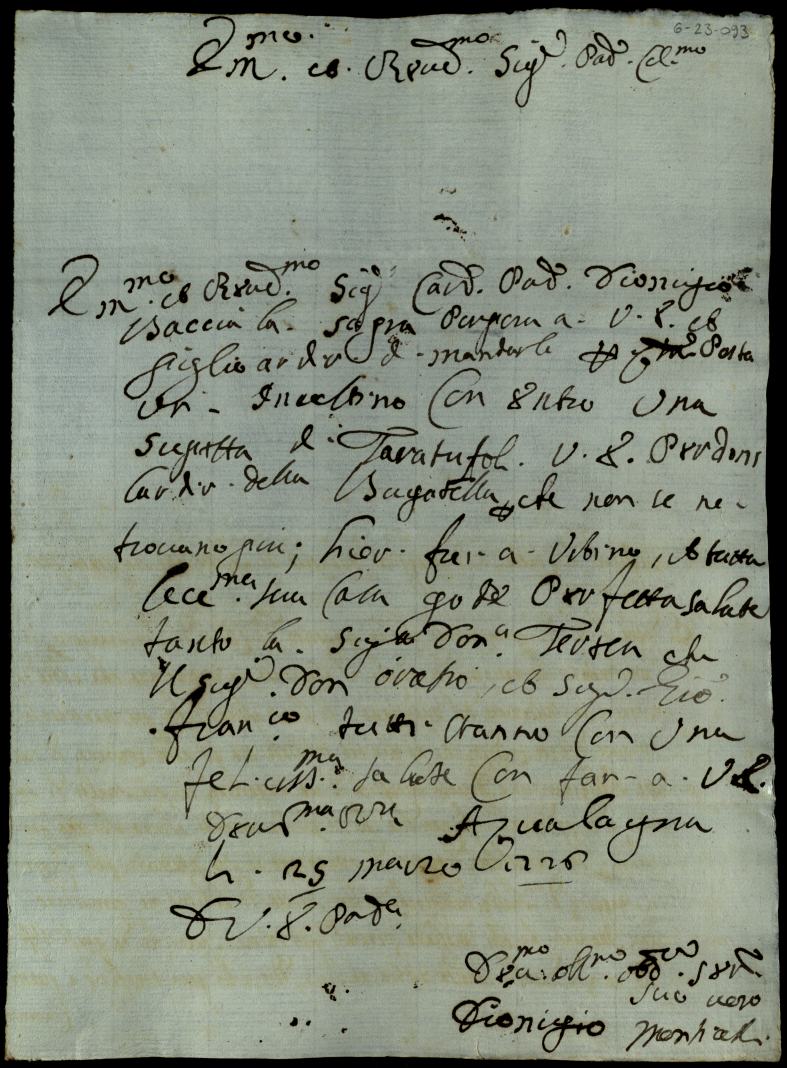 6-23-093
Em.mo et Reud.mo Sig.r Pad. Col.mo
Em.mo et Reud.mo Sig.r Card. Pad. Dionigio
Baccia la sagra Porpora a V. E. et
Piglio ardir di mandarle Posta
un Involtino Con Entro Una
di Taratufoli. V. E. Perdoni
lardir della Bagatella, che non se ne
trovano piu; hier fui a Urbino, et tutta
lecc.ma sua Casa gode Perfetta salute
tanto la Sig.ra Don.a Teresa che
Il sig.r Don oratio, et Sig.r Gio.
Fran.co tutti stanno Con Una
feliciss.ma salute Con far a V. E.
Aqualagna
li 25 marzo
D V. E. Pad.a
Deu.mo obl.mo obb. Ser.
suo vero
Dionigio